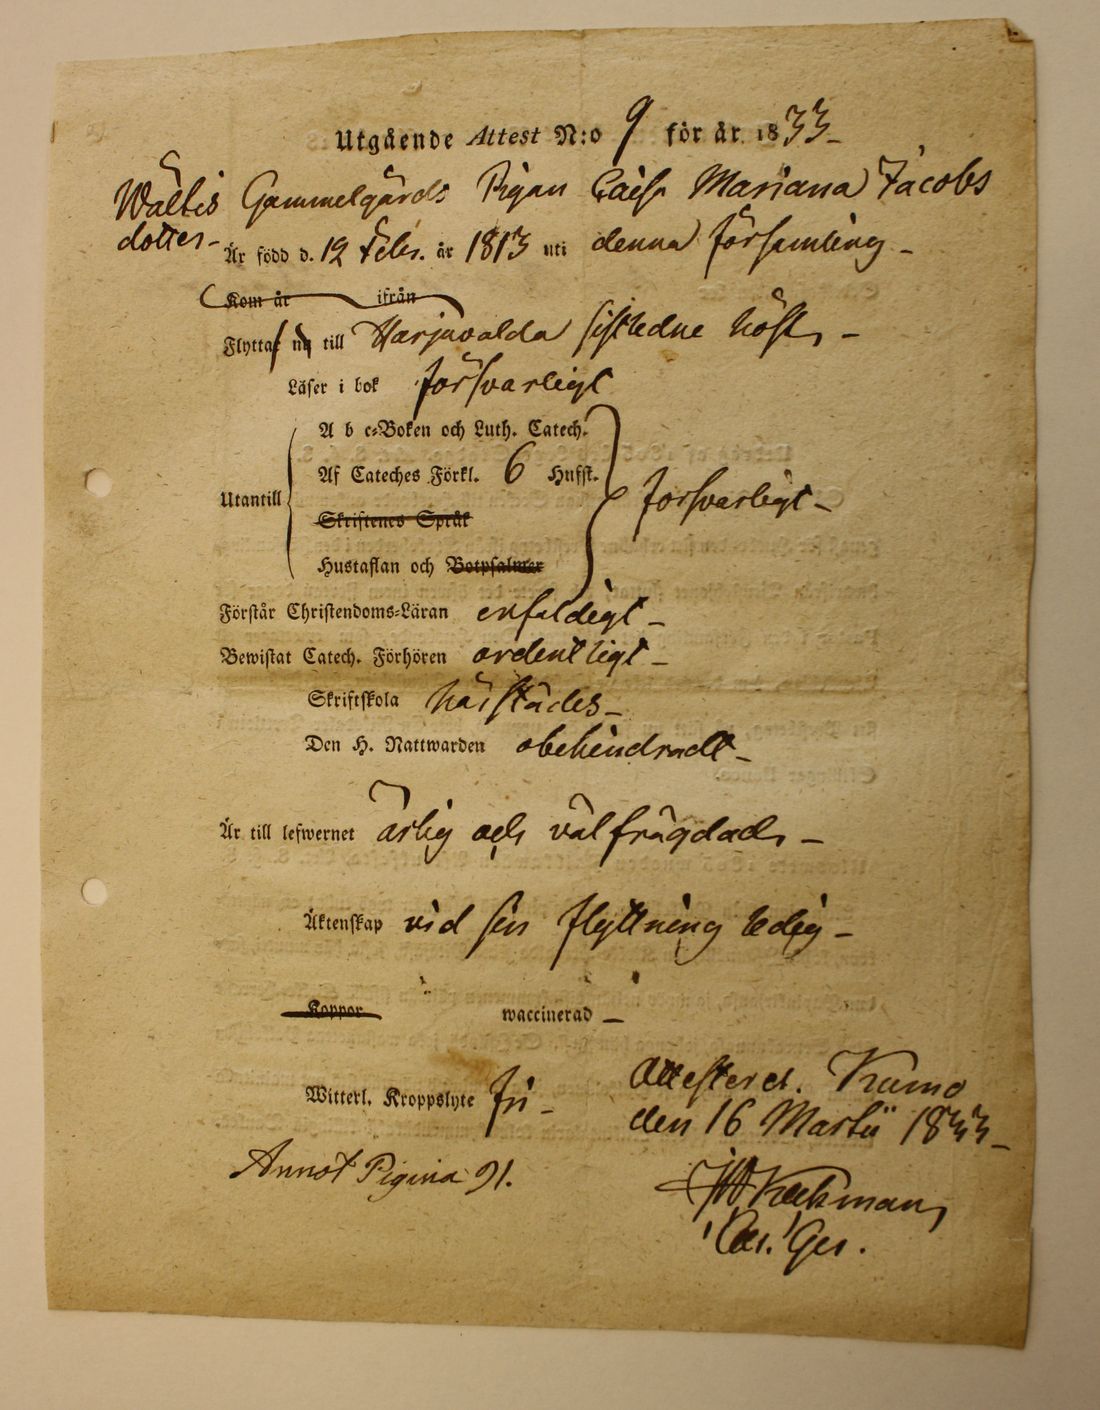 Utgående Attest N:o 9 för år 1833
Wältis Gammelgårds Pigan Caisa Mariana Jacobs
dotter-
Är född d. 12 Febr. år 1813 uti denna församling -
Kom år ifrån
Flyttat nu till Harjavalda sistledne höst, -
Läser i bok försvarligt
A b c-Boken och Luth. Catech.
Af Cateches Förkl. 6 Hufst.
Utantill försvarligt -
Skriftenes Språk
Hustaflan och Botpsalmer
Förstår Christendoms-Läran enfaldigt -
Bewistat Catech. Förhören ordentligt -
Skriftskola härstädes -
Den H. Nattwarden obehindradt -
Är till lefwernet ärlig och välfrägdad, -
Äktenskap vid sin flyttning ledig -
Koppor waccinerad -
Witterl. Kroppslyte fri -
Attesterar. Kumo
den 16 Martii 1833 -
Annot Pagina 91.